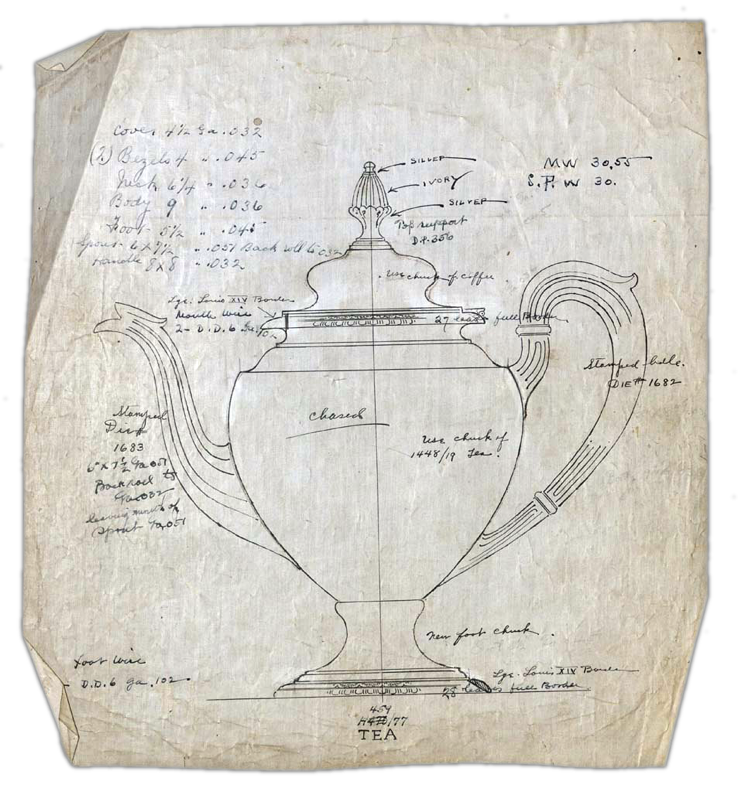 Cover 4½ Ga .032
(2) Bezels 4 " .045
Neck 6¼ " .036
Body 9 " .036
Foot 5½ " .045
Spout 6 x 7½ " .051 Back roll to .032
Handle 8x8 " .032
SILVER
IVORY
SILVER
Top support
D.P. 356
MW 30.55
S.F. W 30.
Use chuck of coffee
Lge. Louis XIV Border
Mouth wire
2 - D.D.6 Ga.
27 leaves full Border
Stamped
DIE# 1682
chased
Use chuck of
1448/19 Tea.
Stamped
Die#
1683
6 x 7½ Ga 051
Back roll to
Ga 032
leaving mouth of
Spout Ga 051
New foot chuck.
foot wire
D.D.6 ga .102
Lge. Louis XIV Border
28 leaves full Border
459
/77
TEA